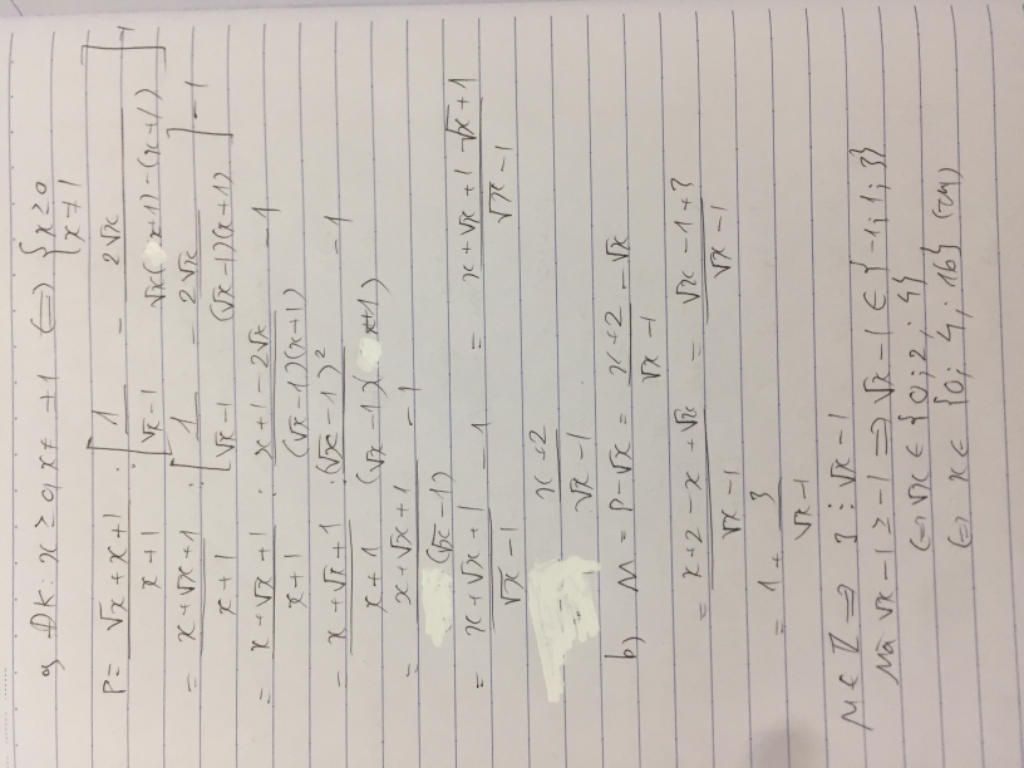 a) ĐK: x ≥ 0, x ≠ ±1 ⇔ { x ≥ 0 x ≠ 1
P = (√x + x + 1)/(x + 1) : [ 1/(√x - 1) - 2√x/(√x(x+1) - (x+1)) ] - 1
= (x + √x + 1)/(x + 1) : [ 1/(√x - 1) - 2√x/((√x - 1)(x + 1)) ] - 1
= (x + √x + 1)/(x + 1) : (x + 1 - 2√x)/((√x - 1)(x + 1)) - 1
= (x + √x + 1)/(x + 1) : (√x - 1)²/((√x - 1)(x + 1)) - 1
= (x + √x + 1)/(√x - 1) - 1
= (x + √x + 1)/(√x - 1) - 1 = (x + √x + 1 - √x + 1)/(√x - 1)
(x + 2)/(√x - 1)
b) M = P - √x = (x + 2)/(√x - 1) - √x
= (x + 2 - x + √x)/(√x - 1) = (√x - 1 + 3)/(√x - 1)
= 1 + 3/(√x - 1)
M ∈ Z ⇒ 3 ⋮ √x - 1
Mà √x - 1 ≥ -1 ⇒ √x - 1 ∈ {-1; 1; 3}
⇔ √x ∈ {0; 2; 4}
⇔ x ∈ {0; 4; 16} (tm)